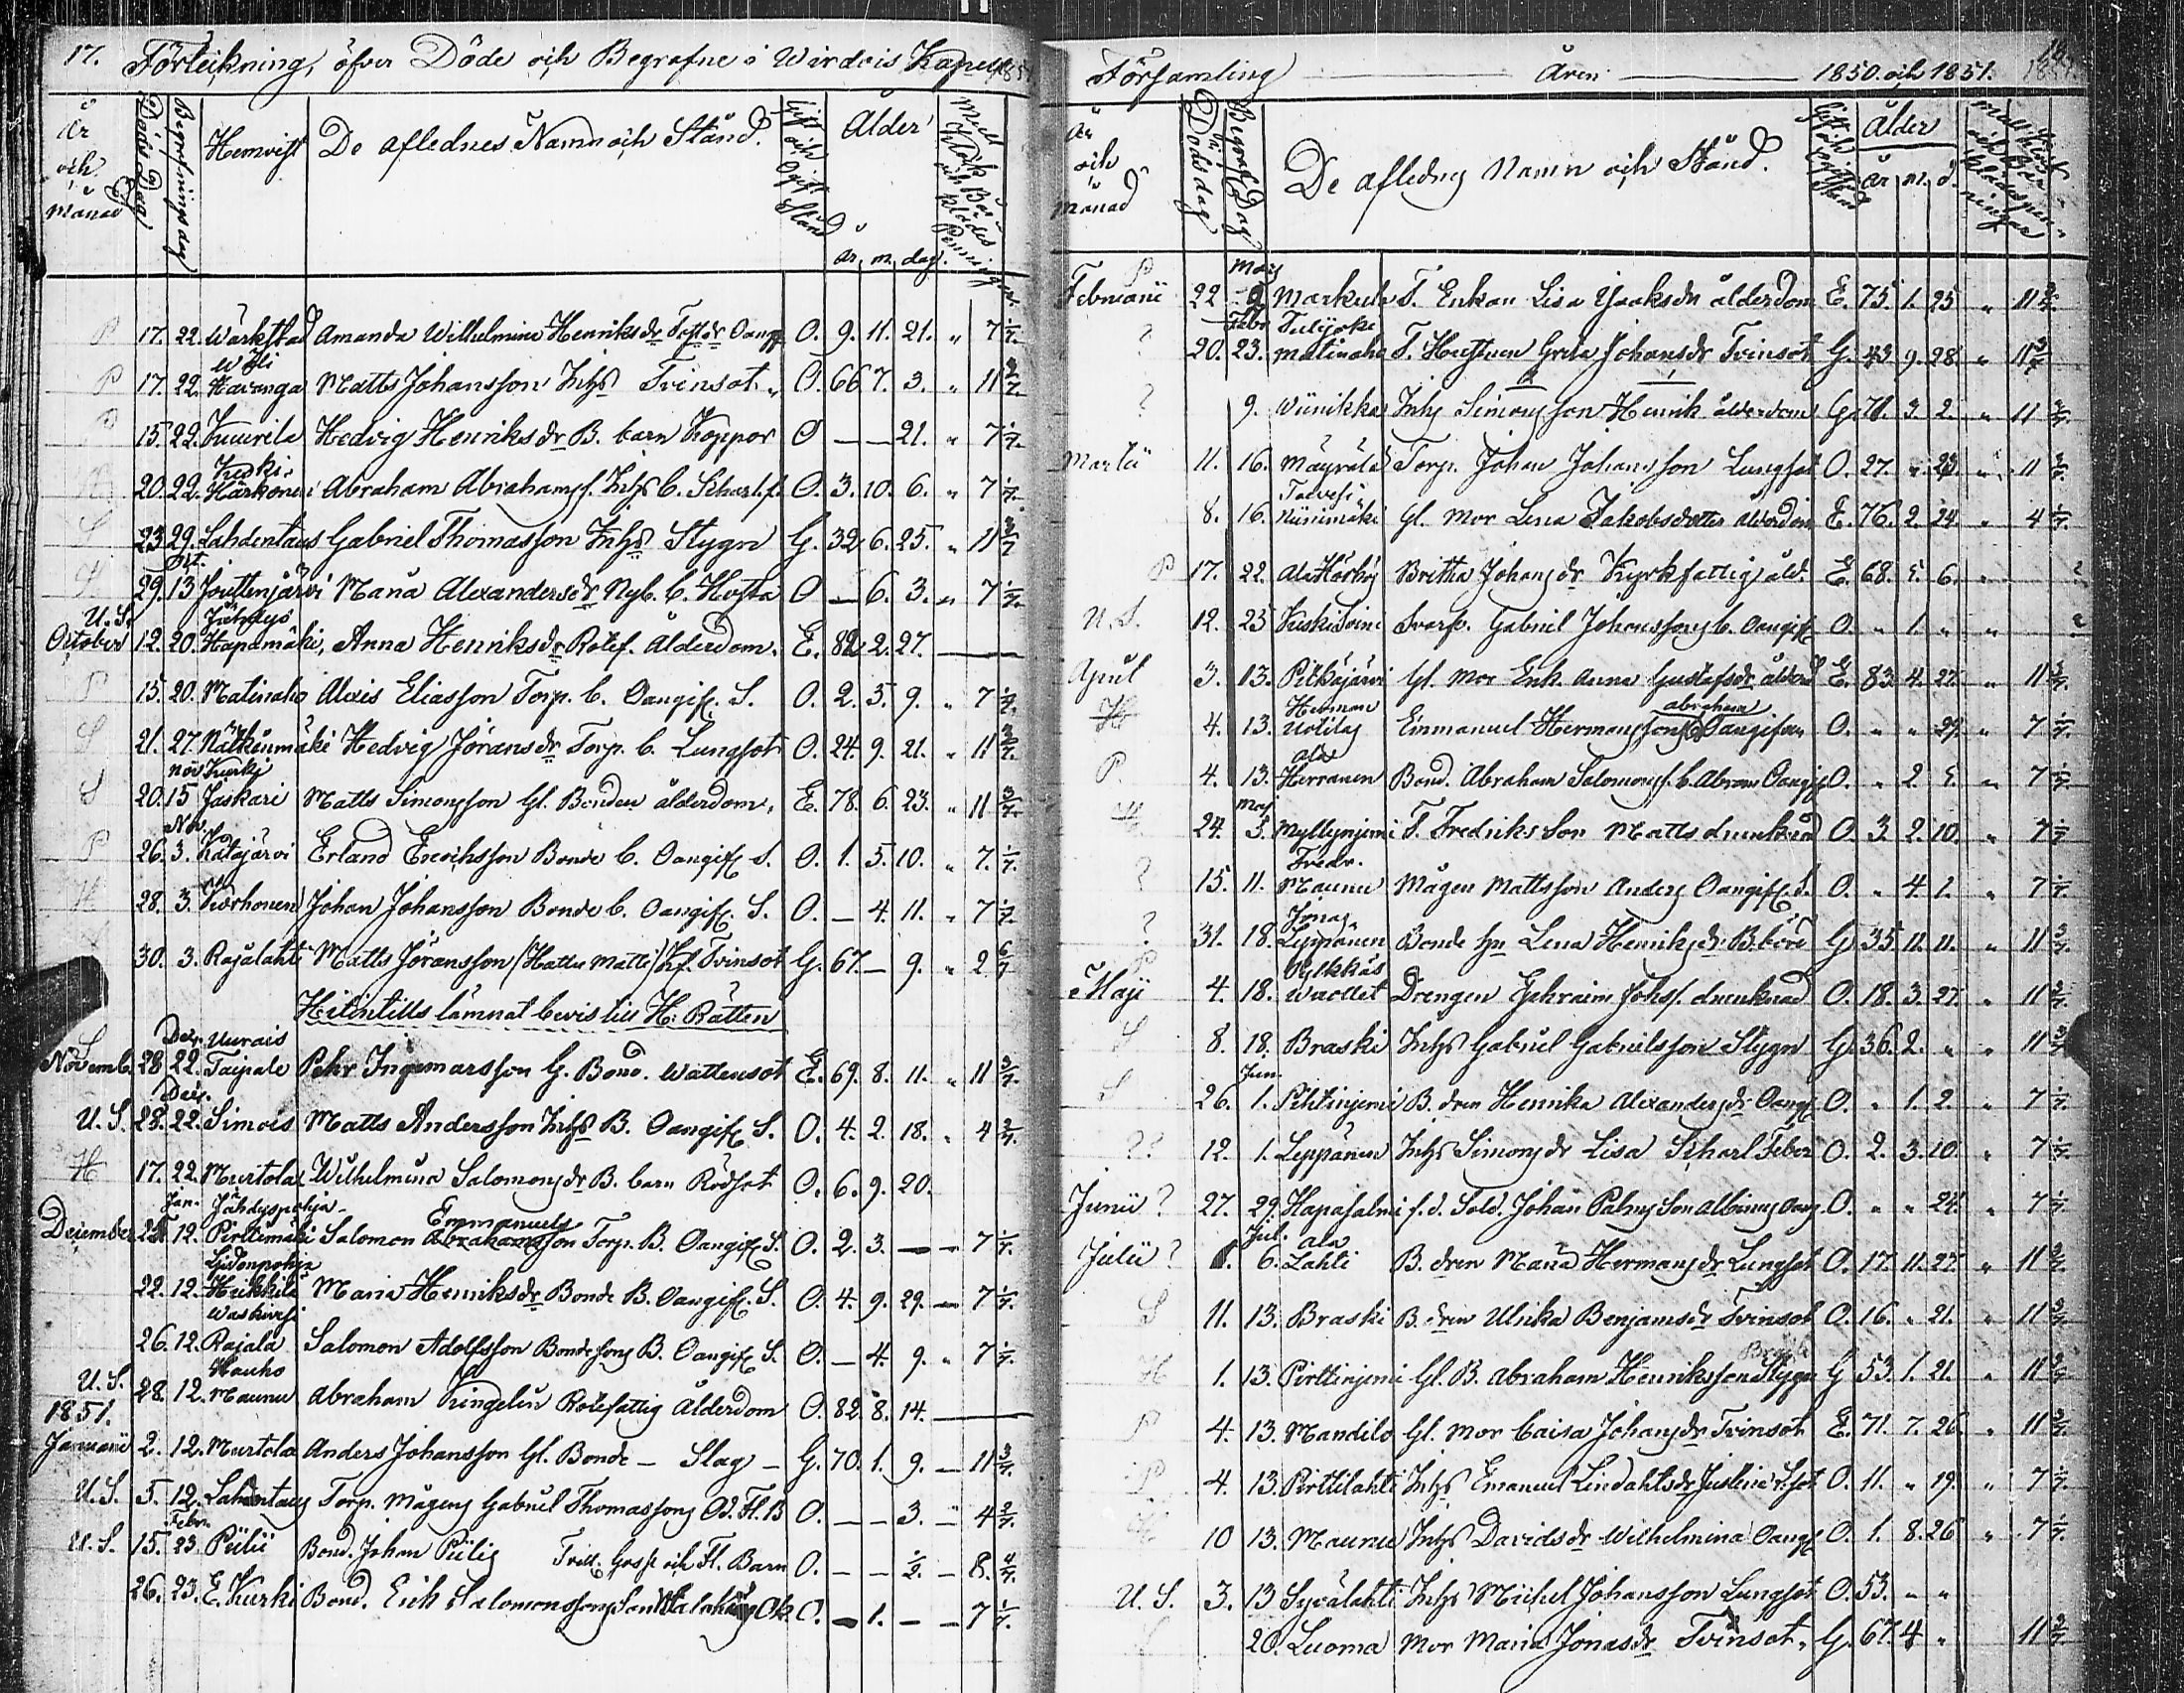 17. Förteckning, öfver Döde och Begrafne i Wirdois Kapell
År och Månad
Döds Dag
Begrafningsdag
Hemvist
De aflednes Namn och Stånd.
Gift och Ogift Stånd
Ålder
år, m, dag.
P 17. 22. Wärkstad Amanda Wilhelmina Henriksdr O. 9. 11. 21. " 7 1/7.
P 17. 22. Havanga Matts Johansson Inhs Tvinsot " O. 66 7. 3. " 11 3/7.
P 15. 22. Kuurila Hedvig Henriksdr B. barn Koppor O — — 21. " 7 1/7.
20. 22. Härkönen Abraham Abrahamss. Inhs b. Scharl.f. O. 3. 10. 6. " 7 1/7.
S 23 29. Lahdentaus Gabriel Thomasson Inhs Stygn G. 32 6. 25. " 11 3/7
Oct.
29. 13 Jouttenjärvi Maria Alexandersdr Nyb. b. Hosta O — 6. 3. " 7 1/7.
U. S. Jähdys
October 12. 20. Hapamäki, Anna Henriksdr Rotef. Ålderdom. E. 82 2. 27. —
P 15. 20. Matinaho Alexis Eliasson Torp. b. Oangif. S. O. 2. 5. 9. " 7 1/7.
S 21. 27. Nälkänmäki Hedvig Jöransdr Torp. b. Lungsot O. 24. 9. 21. " 11 3/7.
Nov Kurki
S 20. 15 Jaskari Matts Simonsson Gl. Bonden ålderdom, E. 78. 6. 23. " 11 3/7.
Nov.
P 26. 3. Katajärvi Erland Erichsson Bonde b. Oangif. S. O. 1. 5. 10. " 7. 1/7.
H 28. 3. Korhonen Johan Johansson Bonde b. Oangif. S. O. — 4. 11. " 7 1/7.
30. 3. Rajalahti Matts Jöransson (Hattu Matti) Tvinsot G. 67. — 9. " 2 6/7
Hitintills lämnat bevis till H. Rätten
Dec. Uurais
Novemb. 28 22. Taipale Pehr Ingemarsson G. Bond. Wattensot E. 69. 8. 11. " 11 3/7.
Dec.
U. S. 28. 22. Simois Matts Andersson Inhs B. Oangif. S. O. 4. 2. 18. " 4 2/7.
H 17. 22. Murtola Wilhelmina Salomonsdr B. barn Rödsot O. 6. 9. 20.
Jan. Jähdyspohja
Emmanuels
December 25 12. Pirttimäki Salomon Abrahamsson Torp. B. Oangif. S. O. 2. 3. — — 7 1/7.
22. 12. Heikkilä Maria Henriksdr Bonde B. Oangif. S. O. 4. 9. 29. — 7 1/7.
Waskivesi
26. 12. Rajala Salomon Adolfsson Bondesons B. Oangif. S. O. — 4. 9. " 7 1/7.
Hauho
U. S. 28. 12. Maunu Abraham Kingelin Rotefattig Ålderdom O. 82. 8. 14. —
1851.
Januarii 2. 12. Murtola Anders Johansson Gl. Bonde — Slag — G. 70. 1. 9. — 11 3/7.
U. S. 5. 12. Lahdentaus Torp. Mågens Gabriel Thomassons Od. Fl. B O. — — 3. — 4 2/7.
Febr.
U. S. 15. 23. Piilii Bond. Johan Piilis Tvill. Gosse och Fl. Barn O. — — 1/2. — 8. 4/7.
26. 23. E. Kurki Bond. Erik Salomonssons Son O. — 1. — — 7 1/7.
Församling — Åren — 1850. och 1851.
År och Månad
Dödsdag
Begrafn. Dag
De afledns Namn och Stånd.
Ålder
år m. d.
P Mars
Februarii 22 9 Markula T. Enkan Lisa Jaaksdr ålderdom E. 75. 1. 25 " 11 3/7.
Febr.
? 20. 23. Matinaho T. Hustrun Greta Johansdr Tvinsot G. 43. 9. 28. " 11 3/7
? 9. Wiinikka Inhs Simonsson Henrik ålderdom G. 71. 3. 2. " 11 3/7.
Martii 11. 16. Mäyrälä Torp. Johan Johansson Lungsot O. 27. " 23. " 11 3/7.
8. 16. Niinimäki Gl. Mor Lena Jakobsdotter Ålderdom E. 76. 2. 24 " 4 1/7.
P 17. 22. Britha Johansdr Kyrkfattig åld. E. 68. 5. 6. "
U. S. 12. 23 Gabriel Johanssons b. Oangif O. " 1. " "
April 3. 13. Pitkäjärvi Gl. Mor Enk. Anna Gustafsdr ålderd. E. 83. 4. 27. " 11 3/7.
Herman abraham
H 4. 13. Uotilas Emmanuel Hermanssons O. " " 29. " 7 1/7.
ala
P. 4. 13. Herranen Bond. Abraham Salomonss. b. Abram Oangif O. " 2. 5. " 7 1/7.
Maj
24. 5. Myllyniemi T. Fredriks Son Matts drunknad O. 3. 2. 10. " 7 1/7.
Fredr.
? 15. 11. Maunu Mågen Mattsson Anders Oangif. S. O. " 4. 1. " 7 1/7.
Jonas
? 31. 18. Leppänen Bonde hu Lena Henriksdr B.börd G 35. 11. 11. " 11 3/7.
P Pylkkäs
Maji 4. 18. Wuollet Drengen Ephraim Johss. drunknad O. 18. 3. 27. " 11 3/7.
S 8. 18. Braski Inhs Gabriel Gabrielsson Stygn G. 36. 2. " " 11 3/7
Jun.
S 26. 1. B. dren Henrika Alexandersdr Oangif O. " 1. 2. " 7 1/7.
?? 12. 1. Leppänen Inhs Simonsdr Lisa Scharl Feber O. 2. 3. 10. " 7 1/7.
Junii ? 27. 29. Hapasalmi f. d. Sold. Johan Palms Son Albinus Oang. O. " " 24. " 7 1/7.
Jul. ala
Julii ? 6. Lahti B. dren Maria Hermansdr Lungsot O. 17. 11. 27. " 11 3/7.
S 11. 13. Braski B. dren Ulrika Benjamsdr Tvinsot O. 16. " 21. " 11 3/7.
H 1. 13. Pirttiniemi Gl. B. Abraham Henriksson Stygn G 53. 1. 21. " 11 3/7.
P 4. 13. Mandila Gl. Mor Caisa Johansdr Tvinsot E. 71. 7. 26. " 11 3/7.
P 4. 13. Pirttilahti Inhs Emanuel Lindahlsdr Justina O. 11. " 19. " 7 1/7.
10 13. Maunu Inhs Davidsdr Wilhelmina Oangif O. 1. 8. 26 " 7 1/7.
U. S. 3. 13 Syvälahti Inhs Michel Johansson Lungsot O. 53. " "
20. Luoma Mor Maria Jonasdr Tvinsot, G. 67. 4 " 11 3/7.